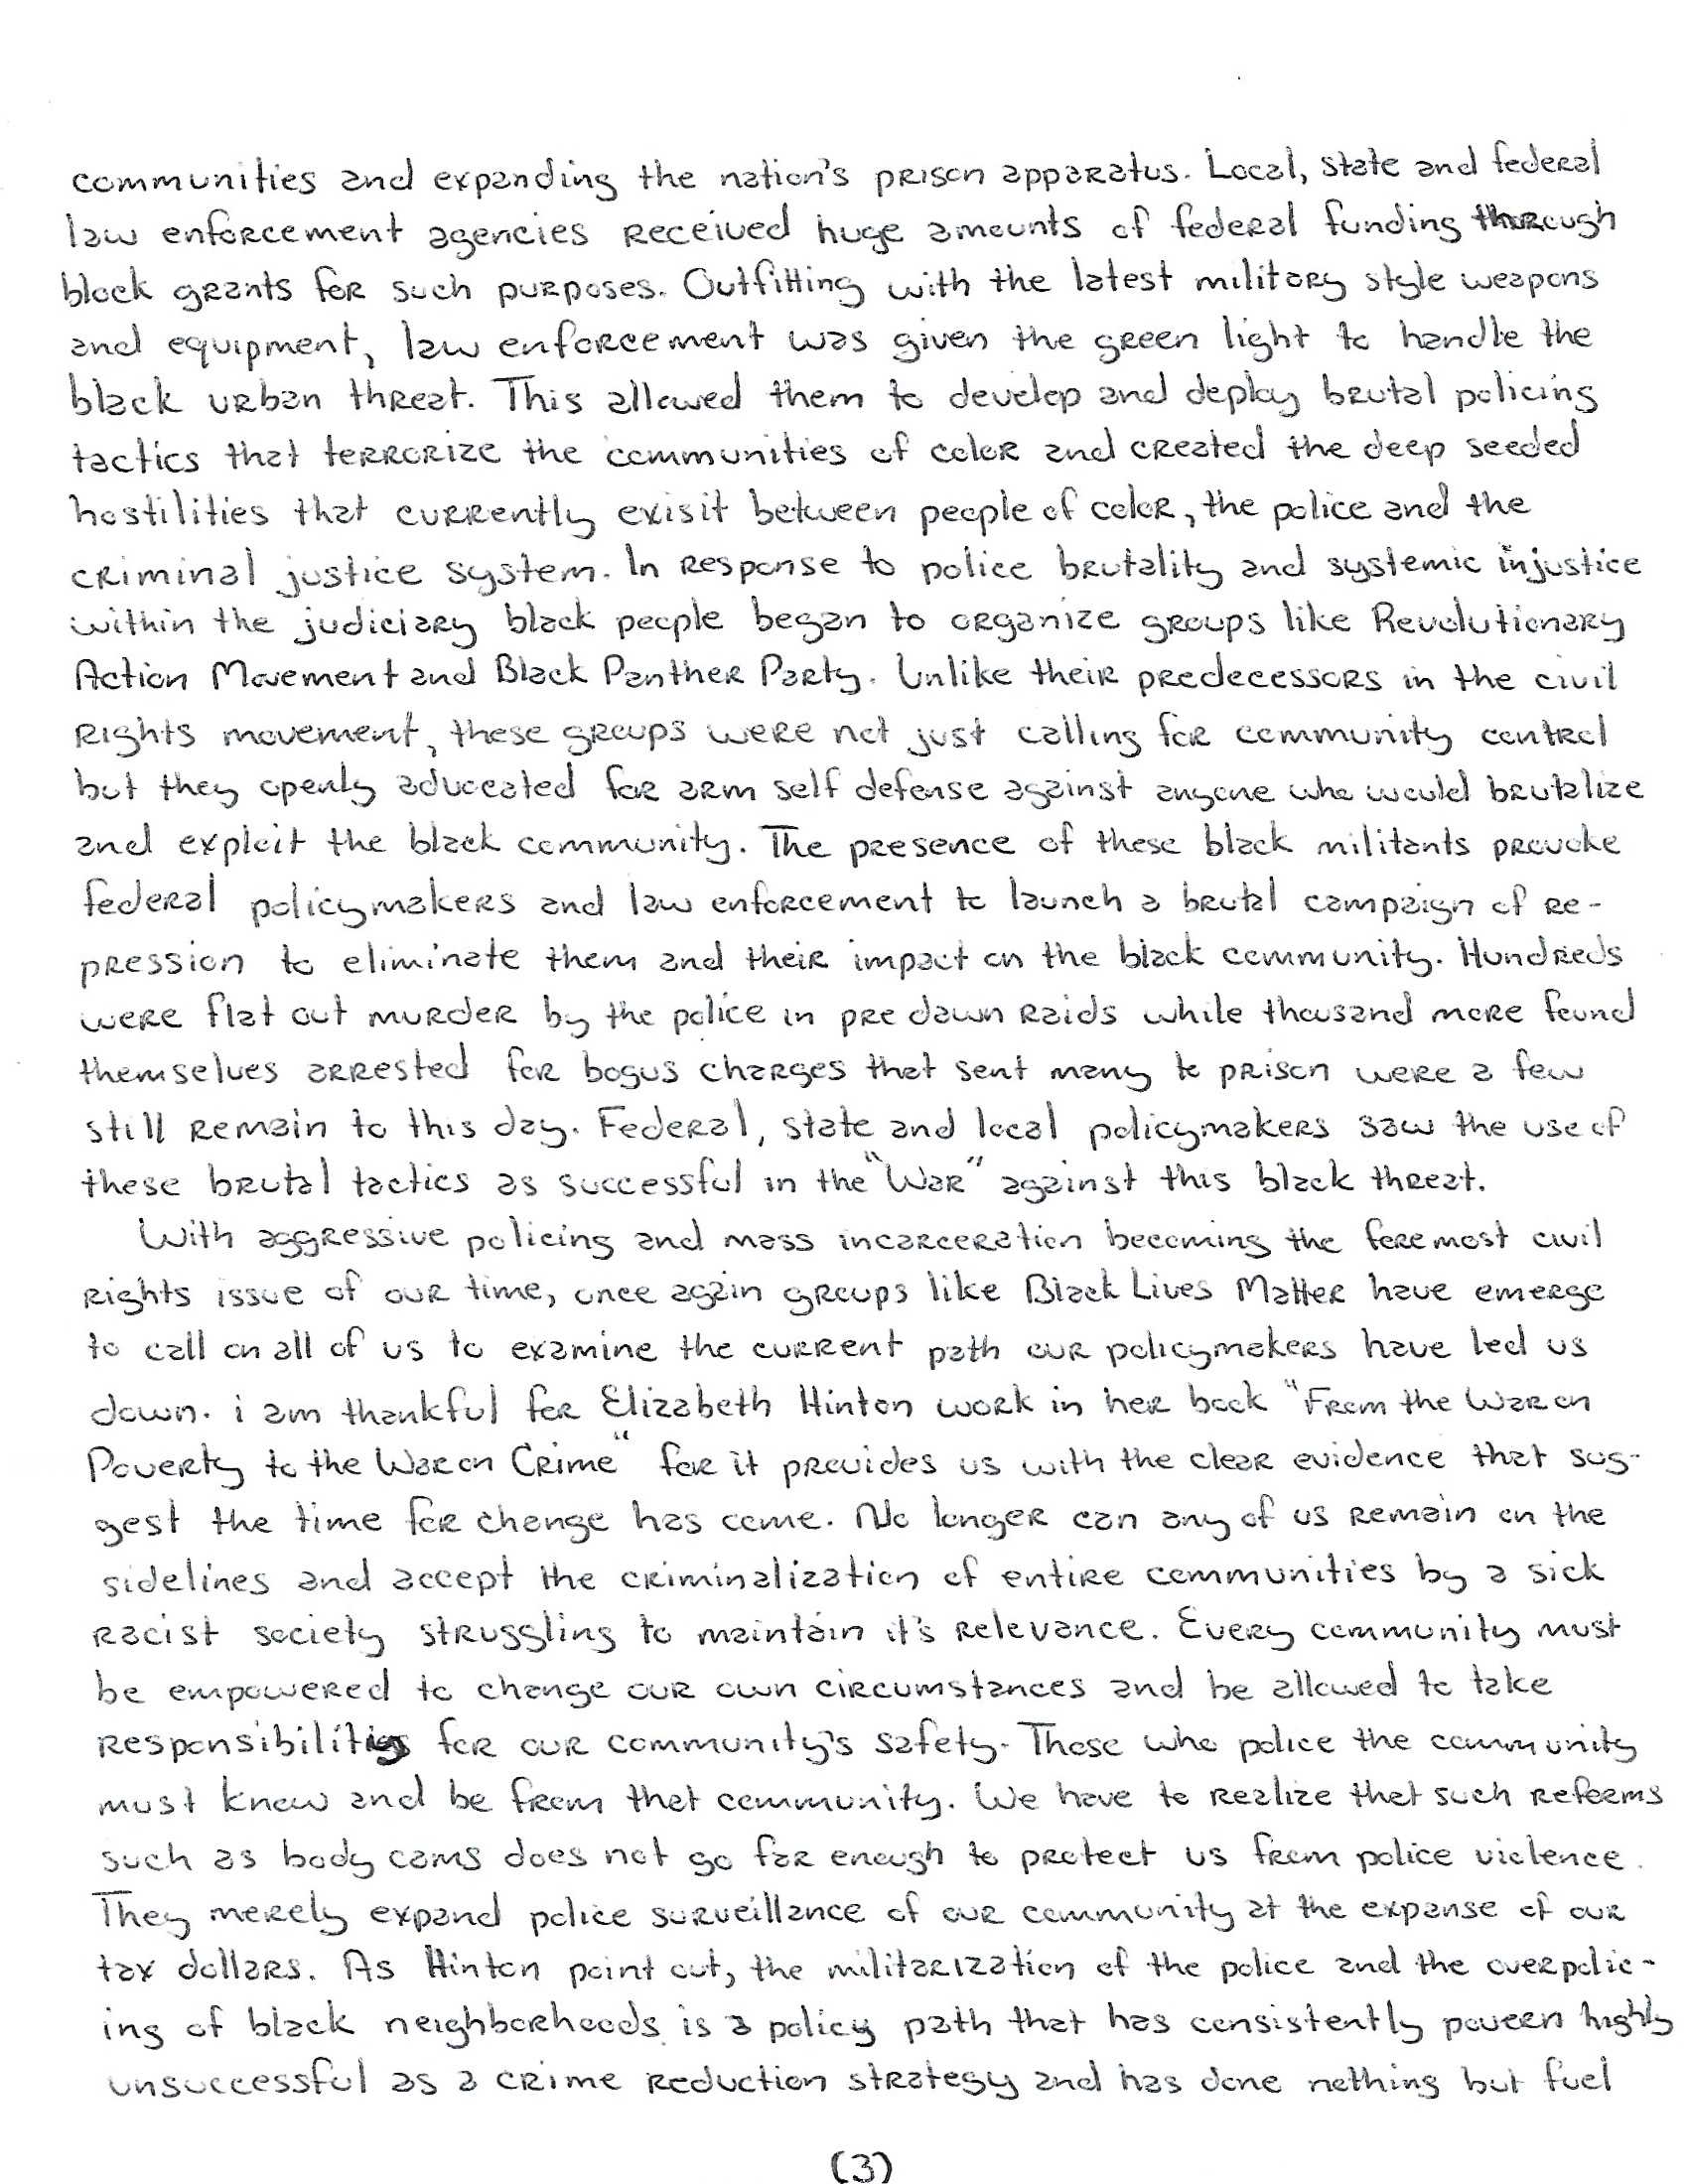 communities and expanding the nation's prison apparatus. Local, state and federal
law enforcement agencies received huge amounts of federal funding through
block grants for such purposes. Outfitting with the latest military style weapons
and equipment, law enforcement was given the green light to handle the
black urban threat. This allowed them to develop and deploy brutal policing
tactics that terrorize the communities of color and created the deep seeded
hostilities that currently exisit between people of color, the police and the
criminal justice system. In response to police brutality and systemic injustice
within the judiciary black people began to organize groups like Revolutionary
Action Movement and Black Panther Party. Unlike their predecessors in the civil
rights movement, these groups were not just calling for community control
but they openly advocated for arm self defense against anyone who would brutalize
and exploit the black community. The presence of these black militants provoke
federal policymakers and law enforcement to launch a brutal campaign of re-
pression to eliminate them and their impact on the black community. Hundreds
were flat out murder by the police in pre dawn raids while thousand more found
themselves arrested for bogus charges that sent many to prison were a few
still remain to this day. Federal, state and local policymakers saw the use of
these brutal tactics as successful in the "War" against this black threat.
With aggressive policing and mass incarceration becoming the foremost civil
rights issue of our time, once again groups like Black Lives Matter have emerge
to call on all of us to examine the current path our policymakers have led us
down. i am thankful for Elizabeth Hinton work in her book "From the War on
Poverty to the War on Crime" for it provides us with the clear evidence that sug-
gest the time for change has come. No longer can any of us remain on the
sidelines and accept the criminalization of entire communities by a sick
racist society struggling to maintain it's relevance. Every community must
be empowered to change our own circumstances and be allowed to take
responsibilities for our community's safety. Those who police the community
must know and be from that community. We have to realize that such reforms
such as body cams does not go far enough to protect us from police violence.
They merely expand police surveillance of our community at the expanse of our
tax dollars. As Hinton point out, the militarization of the police and the overpolic-
ing of black neighborhoods is a policy path that has consistently poveen highly
unsuccessful as a crime reduction strategy and has done nothing but fuel
(3)